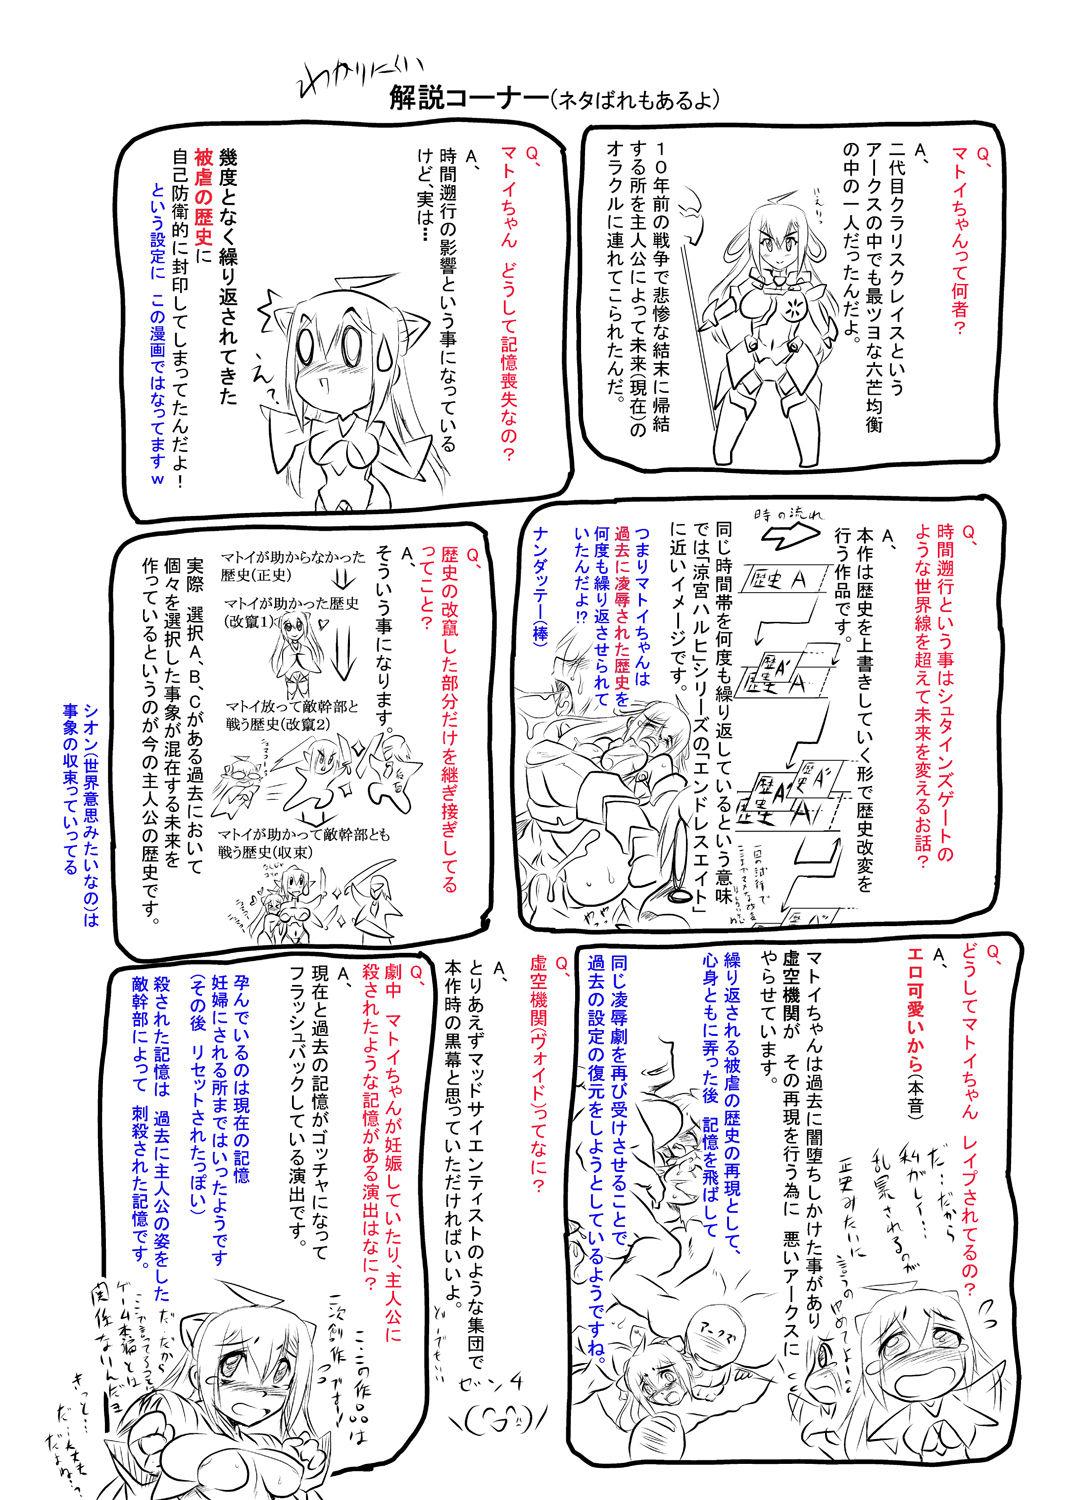 わかりにくい
解説コーナー(ネタばれもあるよ)
Q、
マトイちゃんって何者?
A、
二代目クラリスクレイスという
アークスの中でも最ツヨな六芒均衡
の中の一人だったんだよ。
１０年前の戦争で悲惨な結末に帰結
する所を主人公によって未来(現在)の
オラクルに連れてこられたんだ。
Q、
マトイちゃん　どうして記憶喪失なの?
A、
時間遡行の影響という事になっている
けど、実は…
幾度となく繰り返されてきた
被虐の歴史に
自己防衛的に封印してしまってたんだよ!
という設定に　この漫画ではなってますｗ
えっ
Q、
時間遡行という事はシュタインズゲートの
ような世界線を超えて未来を変えるお話?
A、
本作は歴史を上書きしていく形で歴史改変を
行う作品です。
時の流れ
歴史 A
歴史 A'
歴史 A
歴史 A''
歴史 A'
歴史 A
同じ時間帯を何度も繰り返しているという意味
では「涼宮ハルヒシリーズの「エンドレスエイト」
に近いイメージです。
つまりマトイちゃんは
過去に凌辱された歴史を
何度も繰り返させられて
いたんだよ!?
ナンダッテー(棒)
Q、
歴史の改竄した部分だけを継ぎ接ぎしてる
ってこと?
A、
そういう事になります。
マトイが助からなかった
歴史(正史)
マトイが助かった歴史
(改竄1)
マトイ放って敵幹部と
戦う歴史(改竄2)
マトイが助かって敵幹部とも
戦う歴史(収束)
実際　選択A、B、Cがある過去において
個々を選択した事象が混在する未来を
作っているというのが今の主人公の歴史です。
シオン(世界意思みたいなの)は
事象の収束っていってる
Q、
どうしてマトイちゃん　レイプされてるの?
A、
エロ可愛いから(本音)
マトイちゃんは過去に闇堕ちしかけた事があり
虚空機関が　その再現を行う為に　悪いアークスに
やらせています。
繰り返される被虐の歴史の再現として、
心身ともに弄った後　記憶を飛ばして
同じ凌辱劇を再び受けさせることで、
過去の設定の復元をしようとしているようですね。
だ…だから
私がレイ…
乱暴されるのが
正史みたいに
言うのやめてよーー
アークス
Q、
虚空機関(ヴォイド)ってなに?
A、
とりあえずマッドサイエンティストのような集団で
本作時の黒幕と思っていただければいいよ。
Q、
劇中　マトイちゃんが妊娠していたり、主人公に
殺されたような記憶がある演出はなに?
A、
現在と過去の記憶がゴッチャになって
フラッシュバックしている演出です。
孕んでいるのは現在の記憶
妊婦にされる所まではいったようです
(その後　リセットされたっぽい)
殺された記憶は　過去に主人公の姿をした
敵幹部によって　刺殺された記憶です。
こ、この作品は
二次創作ですー!
だ…だから
ここで言ってることは
ゲーム本編とは
関係ないんだよ
きっと…
だ…大丈夫
だよね…?